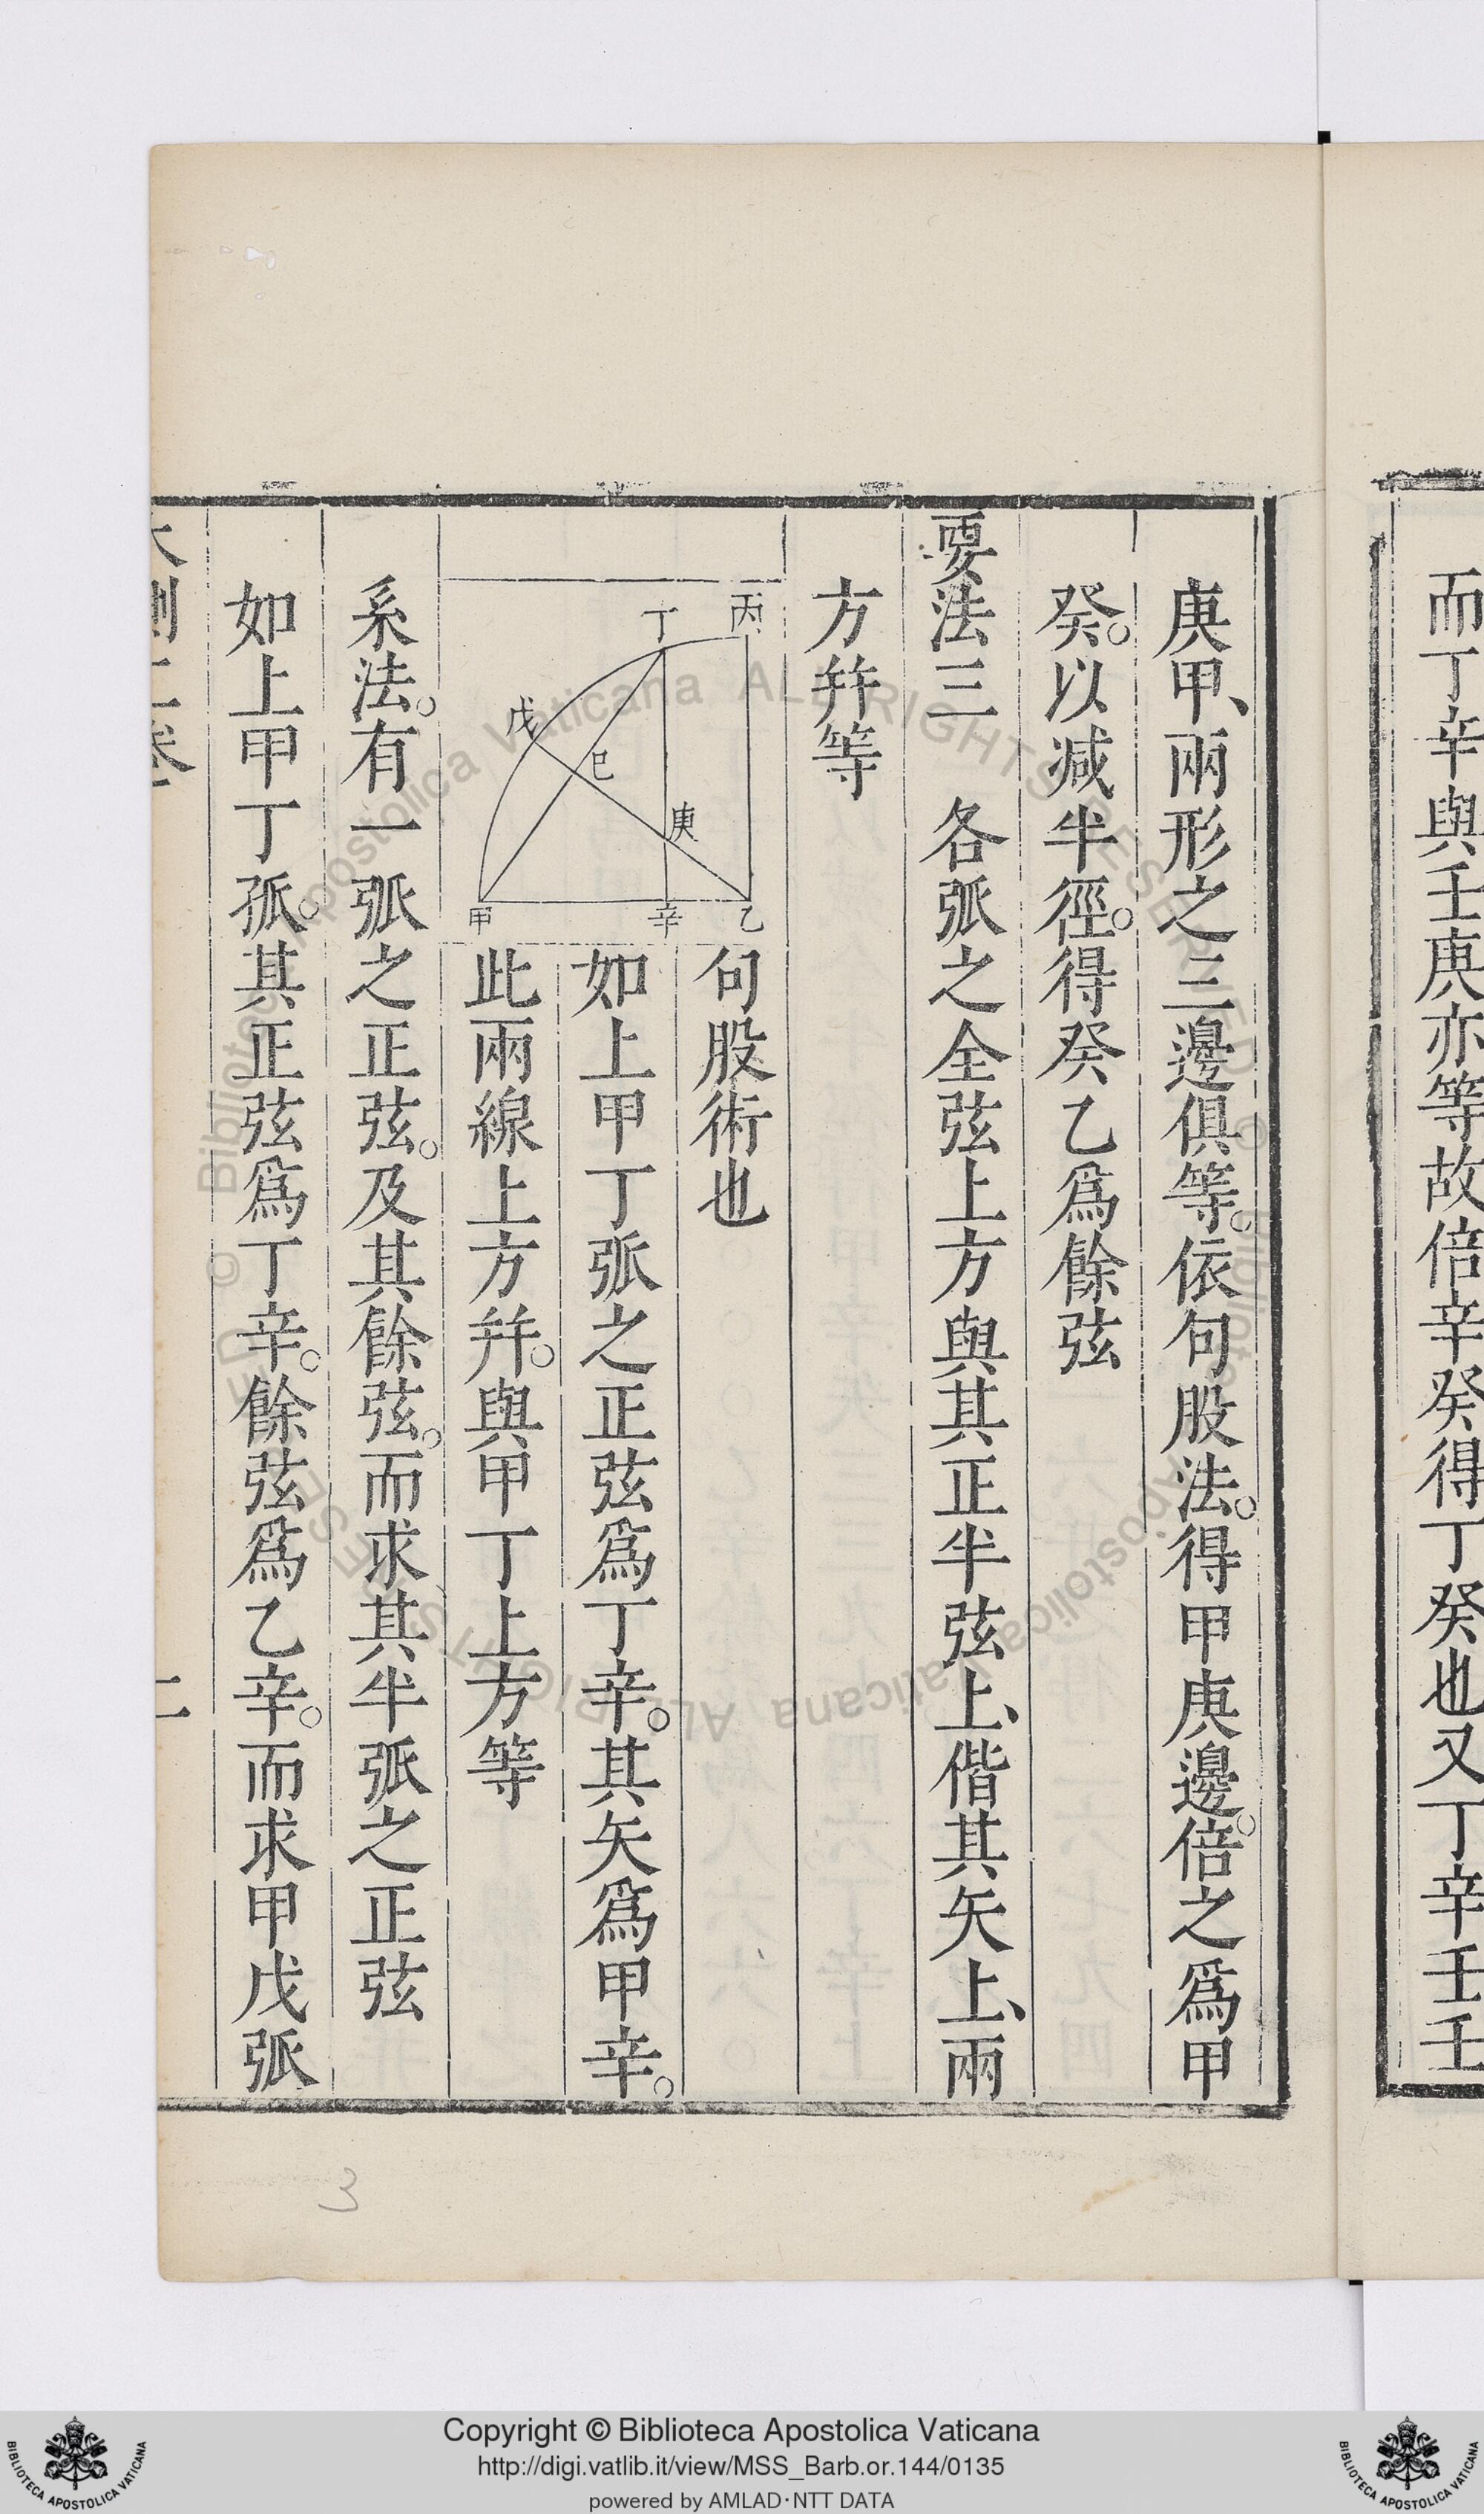 而丁辛與壬庚亦等故倍辛癸得丁癸也又丁辛壬壬
庚甲、兩形之三邊俱等。依句股法。得甲庚邊。倍之爲甲
癸。以减半徑。得癸乙爲餘弦
要法三　各弧之全弦上方與其正半弦上、偕其矢上、兩
方并等
丙
丁
戊
己
庚
甲
辛
乙
句股術也
如上甲丁弧之正弦爲丁辛。其矢爲甲辛。
此兩線上方并。與甲丁上方等
系法。有一弧之正弦。及其餘弦。而求其半弧之正弦
如上甲丁弧。其正弦爲丁辛。餘弦爲乙辛。而求甲戊弧
大測二卷 二
3
© Biblioteca Apostolica Vaticana ALL RIGHTS RESERVED © Biblioteca Apostolica Vaticana ALL RIGHTS RESERVED
Copyright © Biblioteca Apostolica Vaticana
http://digi.vatlib.it/view/MSS_Barb.or.144/0135
powered by AMLAD·NTT DATA
BIBLIOTECA APOSTOLICA VATICANA
BIBLIOTECA APOSTOLICA VATICANA